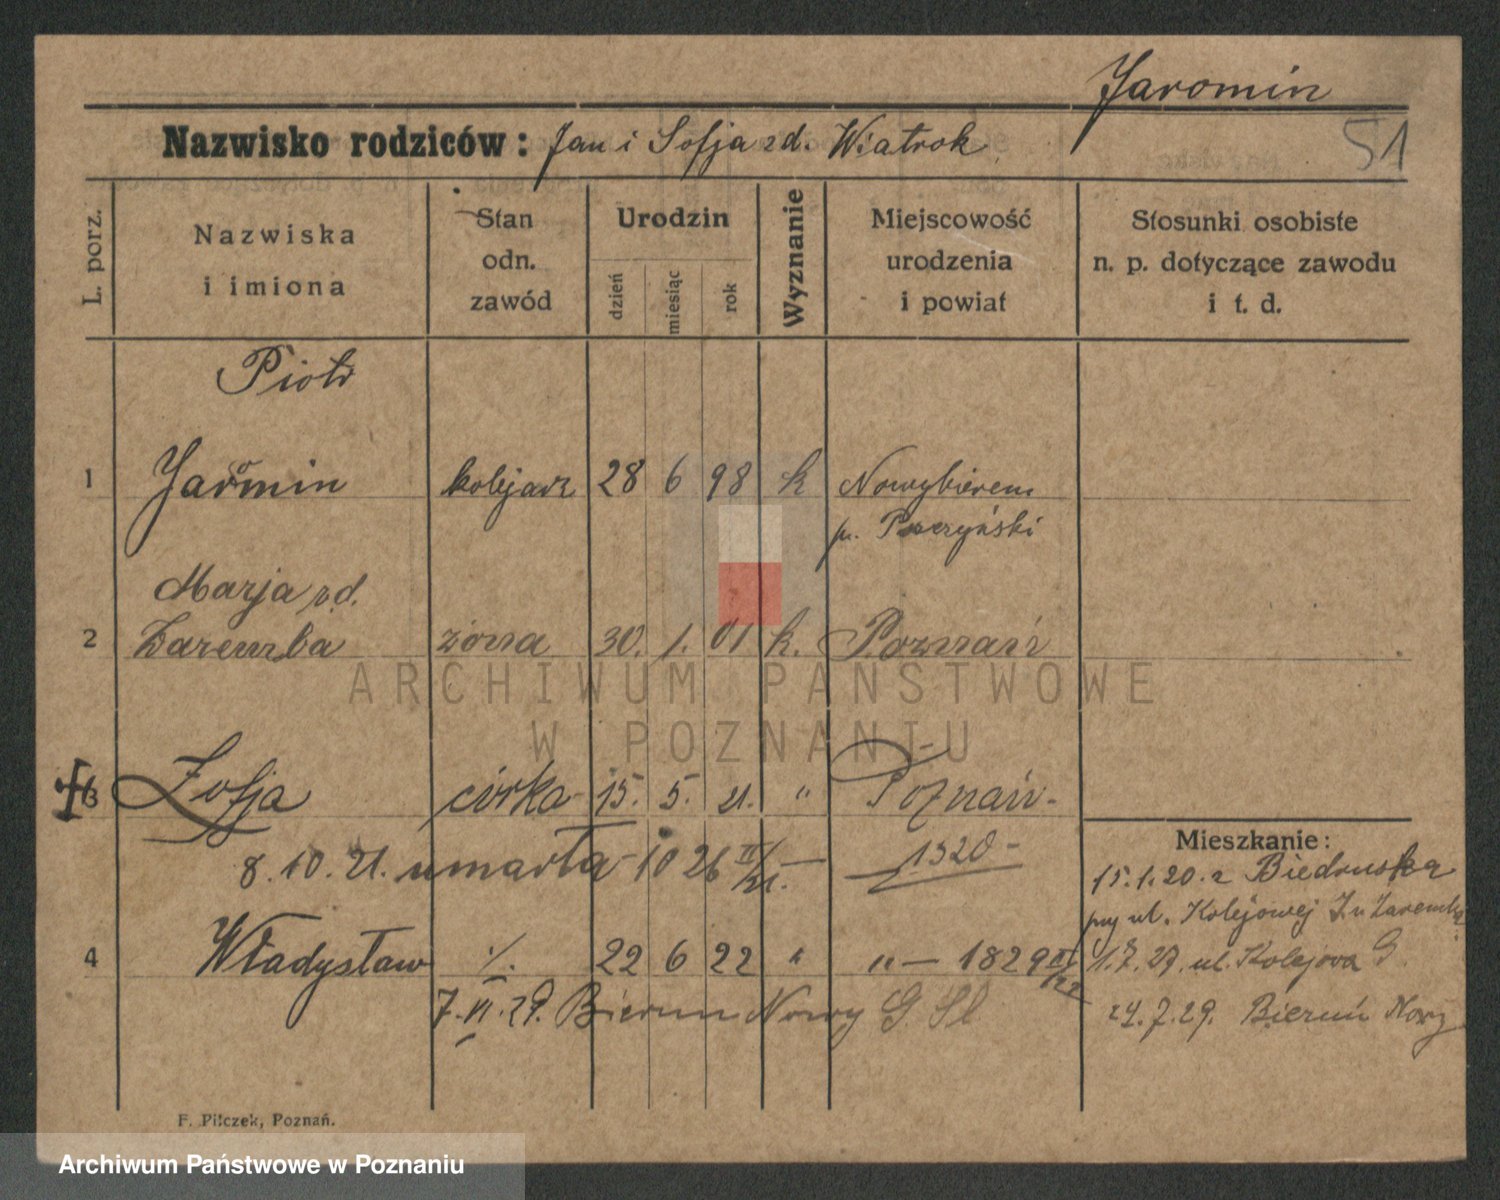 Jaromin
Nazwisko rodziców: Jan i Sofja zd. Wiatrok
51
L. porz.
Nazwiska
i imiona
Stan
odn.
zawód
Urodzin
dzień
miesiąc
rok
Wyznanie
Miejscowość
urodzenia
i powiat
Stosunki osobiste
n. p. dotyczące zawodu
i t. d.
Piotr
1 Jaromin kolejarz 28 6 98 k Nowybieruń
p. Pszczyński
Marja zd.
2 Zaremba żona 30. 1. 01 k. Poznań
3 Zofja córka 15. 5. 21. " Poznań
8. 10. 21. umarła 10 26 II/21. 1320
Mieszkanie:
15.1.20. z Biedruska
przy ul. Kolejowej
4 Władysław ./. 22 6 22 " " 1829 III/22
1.7.27. ul. Kolejova
7. VI. 29. Bierun Nowy G. Sl
24.7.29. Bieruń Nowy
F. Pilczek, Poznań.
ARCHIWUM PAŃSTWOWE
W POZNANIU
Archiwum Państwowe w Poznaniu